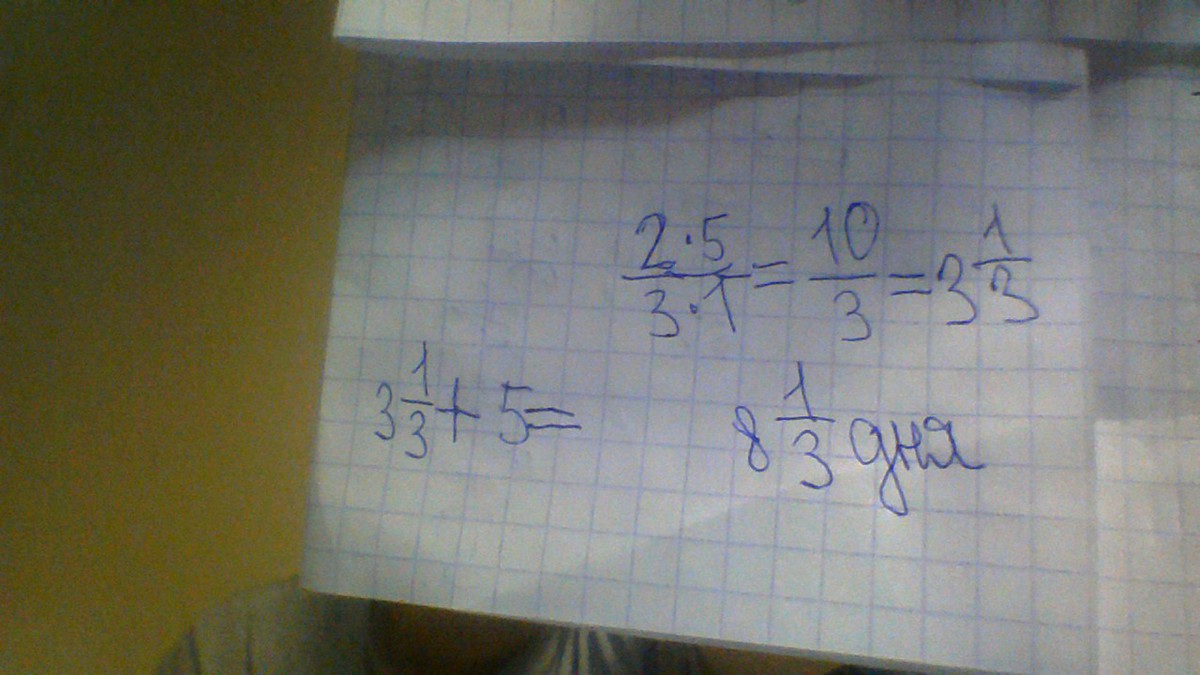 2·5/3·1 = 10/3 = 3 1/3
3 1/3 + 5 = 8 1/3 дня